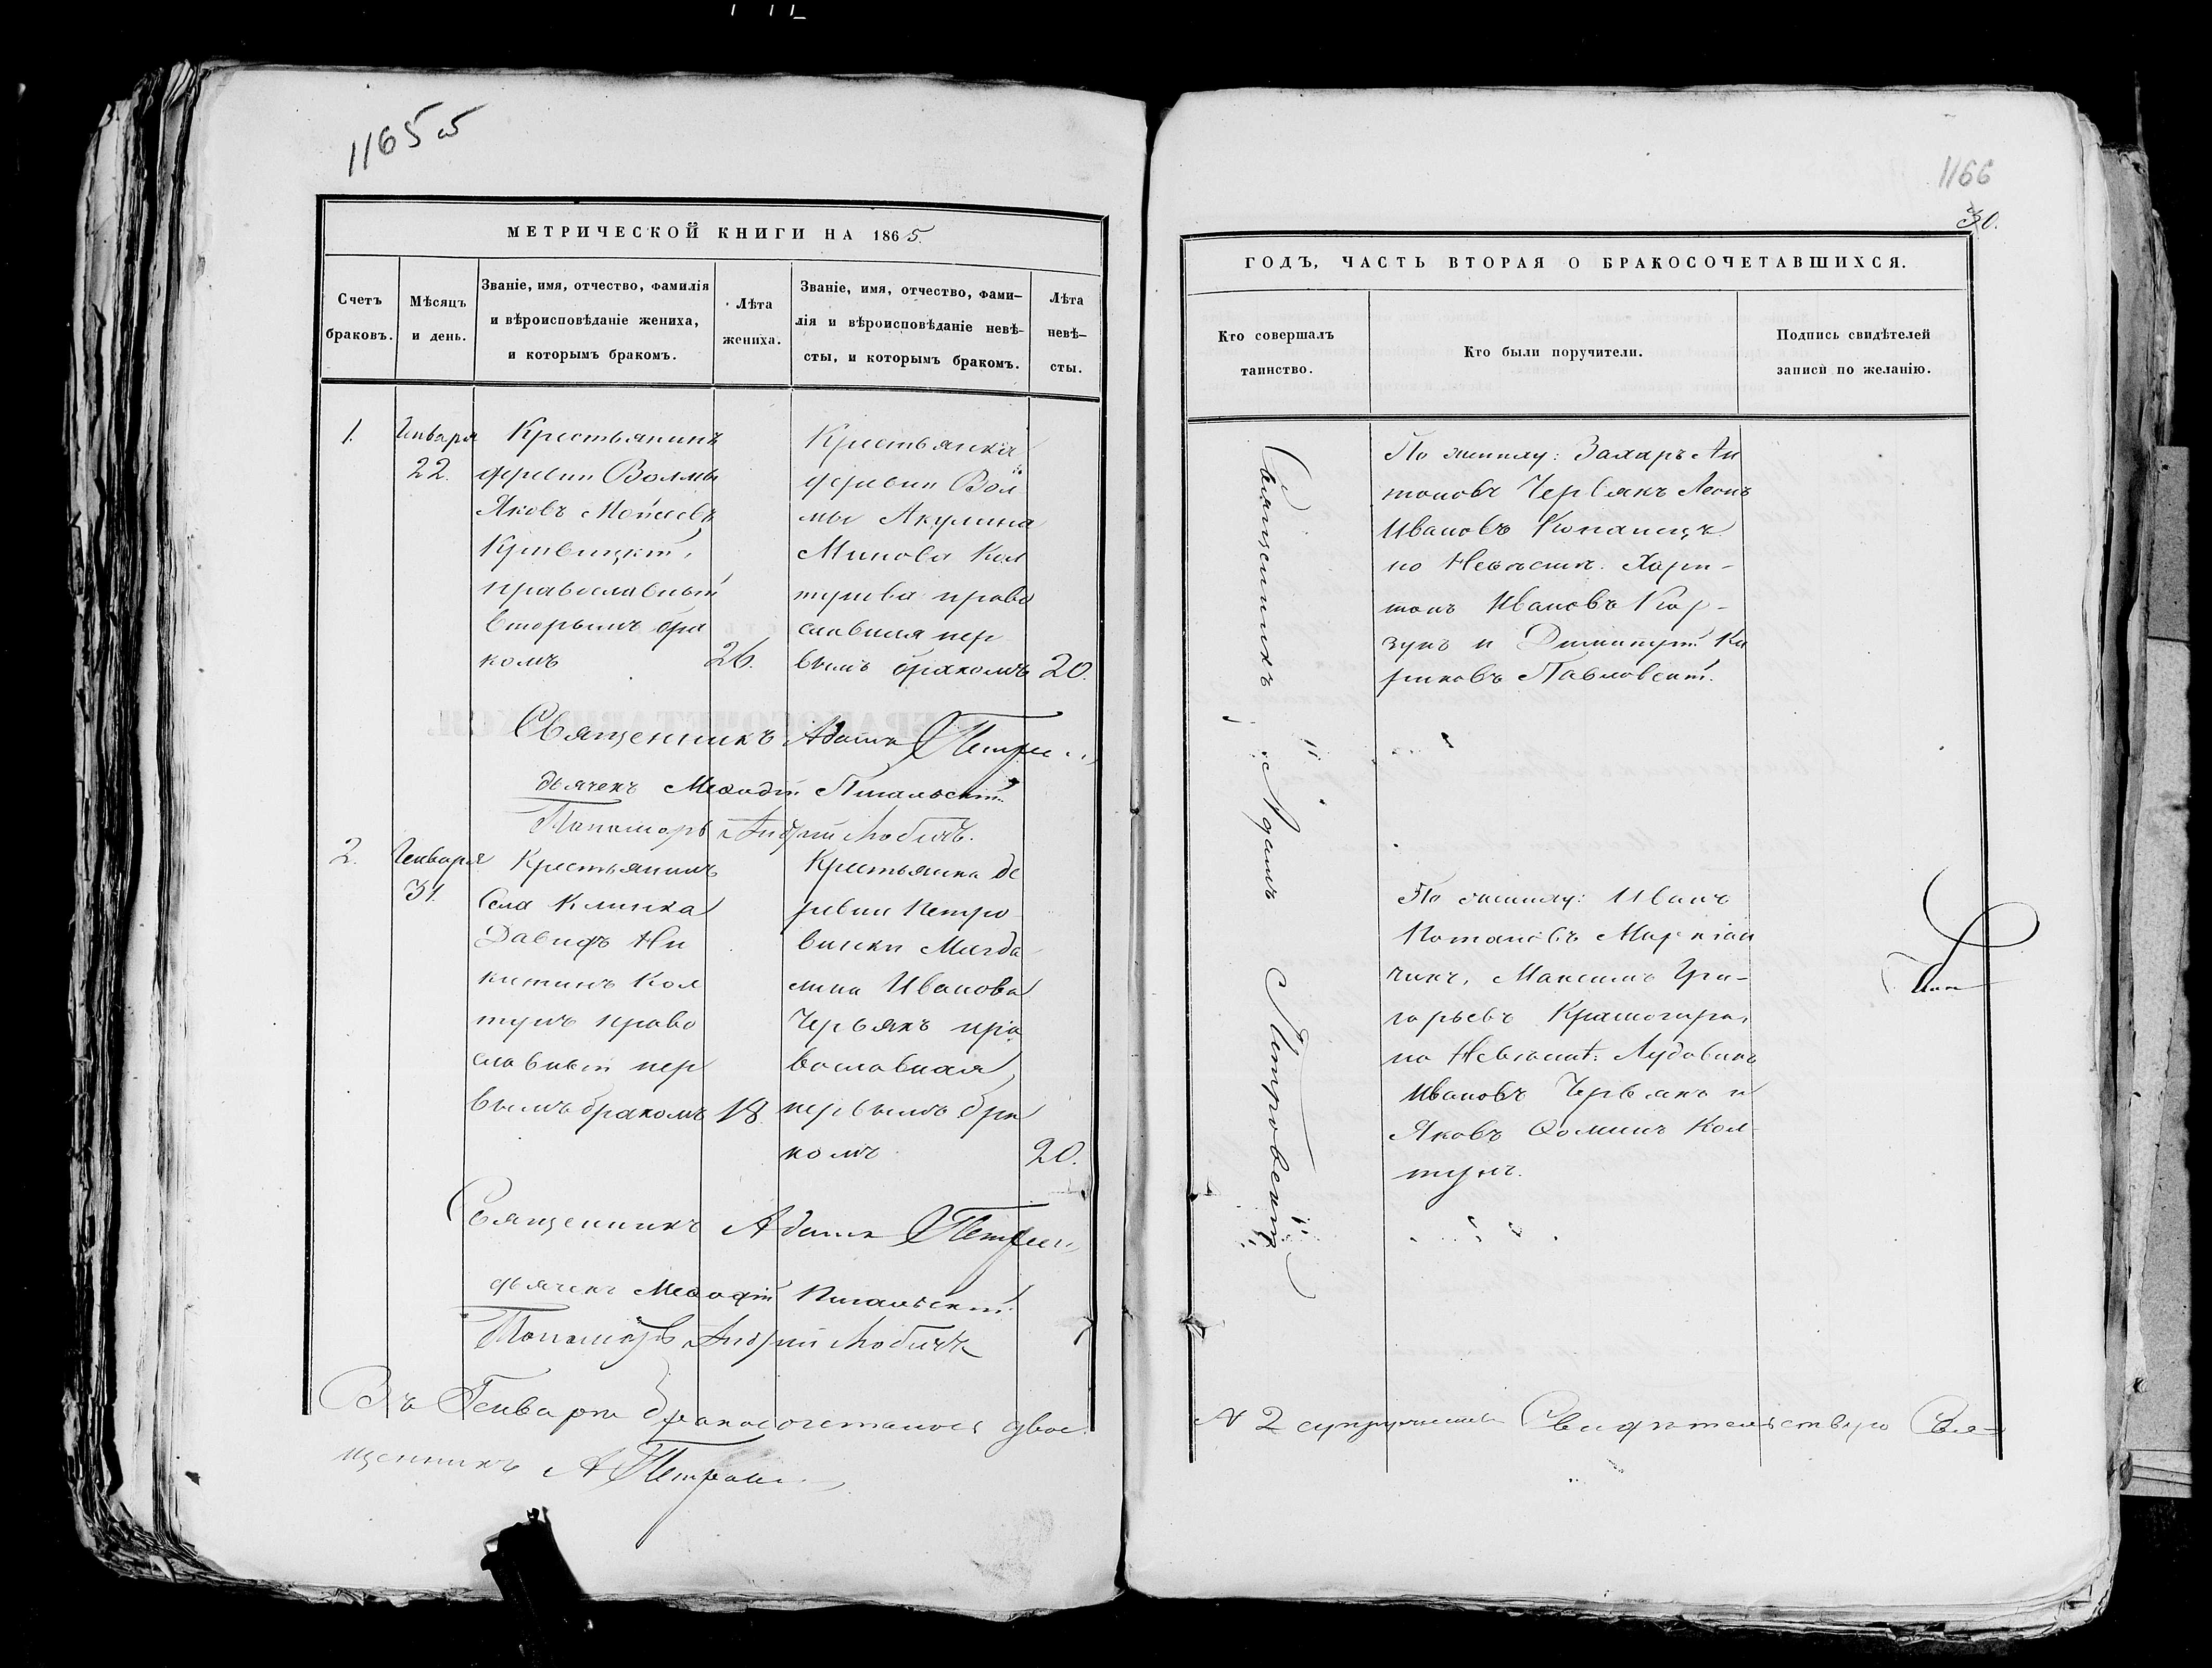 1165 об
МЕТРИЧЕСКОЙ КНИГИ НА 1865
Счетъ браковъ.
Мѣсяцъ и день.
Званіе, имя, отчество, фамилія
и вѣроисповѣданіе жениха,
и которымъ бракомъ.
Лѣта
жениха.
Званіе, имя, отчество, фами-
лія и вѣроисповѣданіе невѣ-
сты, и которымъ бракомъ.
Лѣта
невѣ-
сты.
1.
Генваря
22.
Крестьянинъ
деревни Волмы
Яковъ Моисеевъ
Кривицкій,
православный
вторымъ бра
комъ
26.
Крестьянка
деревни Вол
мы Акулина
Минова Кол
тунова право
славная пер
вымъ бракомъ
20.
Священникъ Адамъ
дьячекъ Меѳодій
Пономарь Андрей
2.
Генваря
31.
Крестьянинъ
села Клинка
Давидъ Ни
китинъ Кол
тунъ право
славный пер
вымъ бракомъ
18.
Крестьянка де
ревни Петро
вински Магда
лина Иванова
Червякъ пра
вославная,
первымъ бра
комъ
20.
Священникъ Адамъ
дьячекъ Меѳодій
Пономарь Андрей
Въ Генварѣ бракосочеталось двое
щенникъ А
1166
30.
ГОДЪ, ЧАСТЬ ВТОРАЯ О БРАКОСОЧЕТАВШИХСЯ.
Кто совершалъ
таинство.
Кто были поручители.
Подпись свидѣтелей
записи по желанію.
Священникъ Адамъ Петровскій
По жениху: Захаръ Ан
тоновъ Червякъ Леонъ
Ивановъ Копанецъ
по Невѣстѣ: Хари-
тонъ Ивановъ Кор-
зунъ и Димитрій Ки
риковъ Павловскій.
По жениху: Иванъ
Потаповъ
чикъ, Максимъ Гри-
горьевъ
по Невѣстѣ: Лудовикъ
Ивановъ Червякъ и
Яковъ Ѳоминъ Кол
тунъ.
№ 2 супружества Свидѣтельствую Свя-